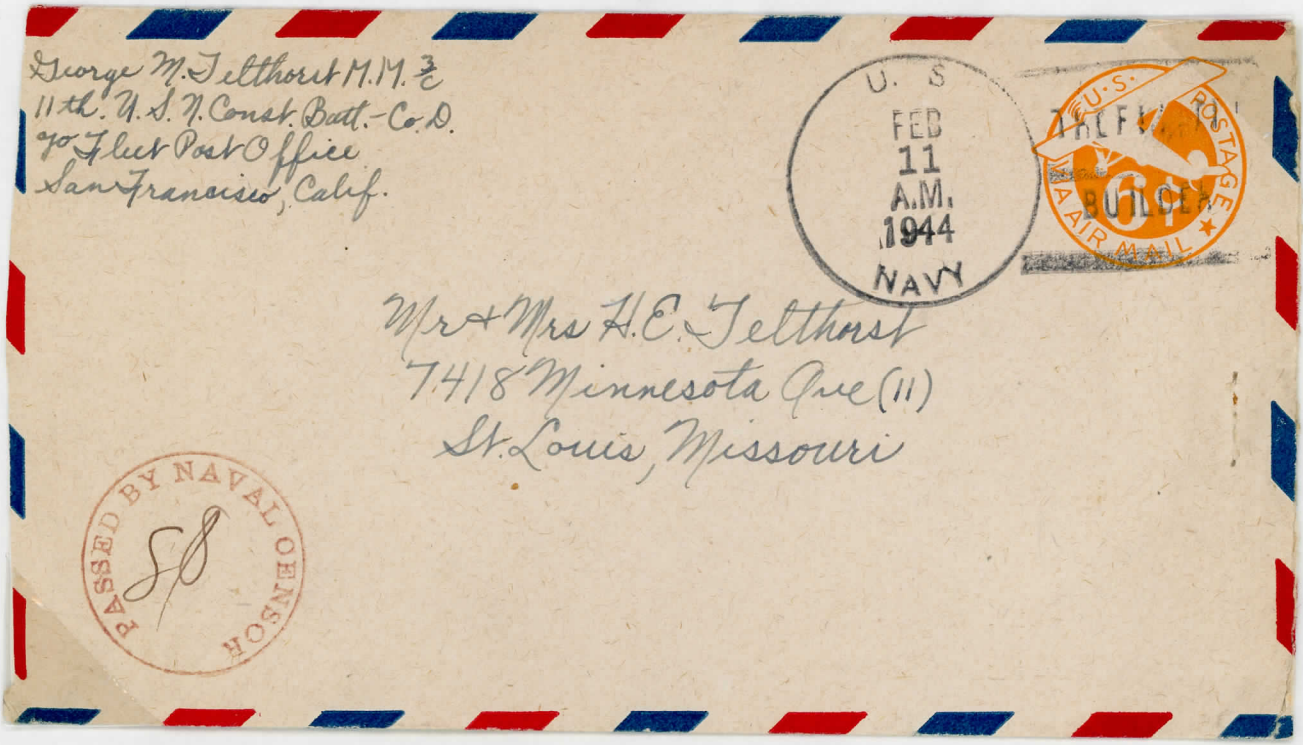 George M. Telthorst M.M. 3/c
11th. U.S.N. Const. Batt.-Co. D.
℅ Fleet Post Office
San Francisco, Calif.
U. S
FEB
11
A.M.
1944
NAVY
U.S. POSTAGE
6¢
VIA AIR MAIL
BUILDER
Mr & Mrs H.E. Telthorst
7418 Minnesota Ave (11)
St. Louis, Missouri
PASSED BY NAVAL CENSOR